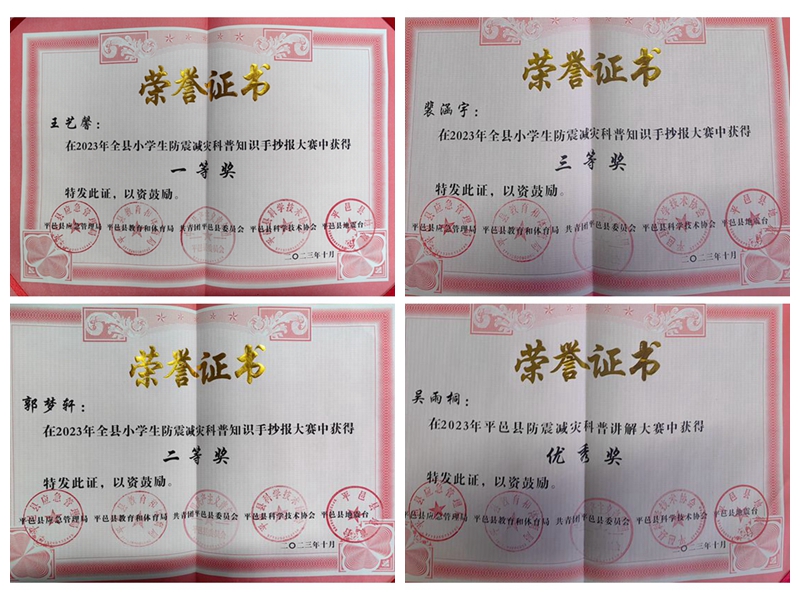 荣誉证书
王艺馨：
在2023年全县小学生防震减灾科普知识手抄报大赛中获得
一等奖
特发此证，以资鼓励。
平邑县应急管理局 平邑县教育和体育局 共青团平邑县委员会 平邑县科学技术协会 平邑县地震台
二〇二三年十月
荣誉证书
裴涵宇：
在2023年全县小学生防震减灾科普知识手抄报大赛中获得
三等奖
特发此证，以资鼓励。
平邑县应急管理局 平邑县教育和体育局 共青团平邑县委员会 平邑县科学技术协会 平邑县地震台
二〇二三年十月
荣誉证书
郭梦轩：
在2023年全县小学生防震减灾科普知识手抄报大赛中获得
二等奖
特发此证，以资鼓励。
平邑县应急管理局 平邑县教育和体育局 共青团平邑县委员会 平邑县科学技术协会 平邑县地震台
二〇二三年十月
荣誉证书
吴雨桐：
在2023年平邑县防震减灾科普讲解大赛中获得
优秀奖
特发此证，以资鼓励。
平邑县应急管理局 平邑县教育和体育局 共青团平邑县委员会 平邑县科学技术协会 平邑县地震台
二〇二三年十月